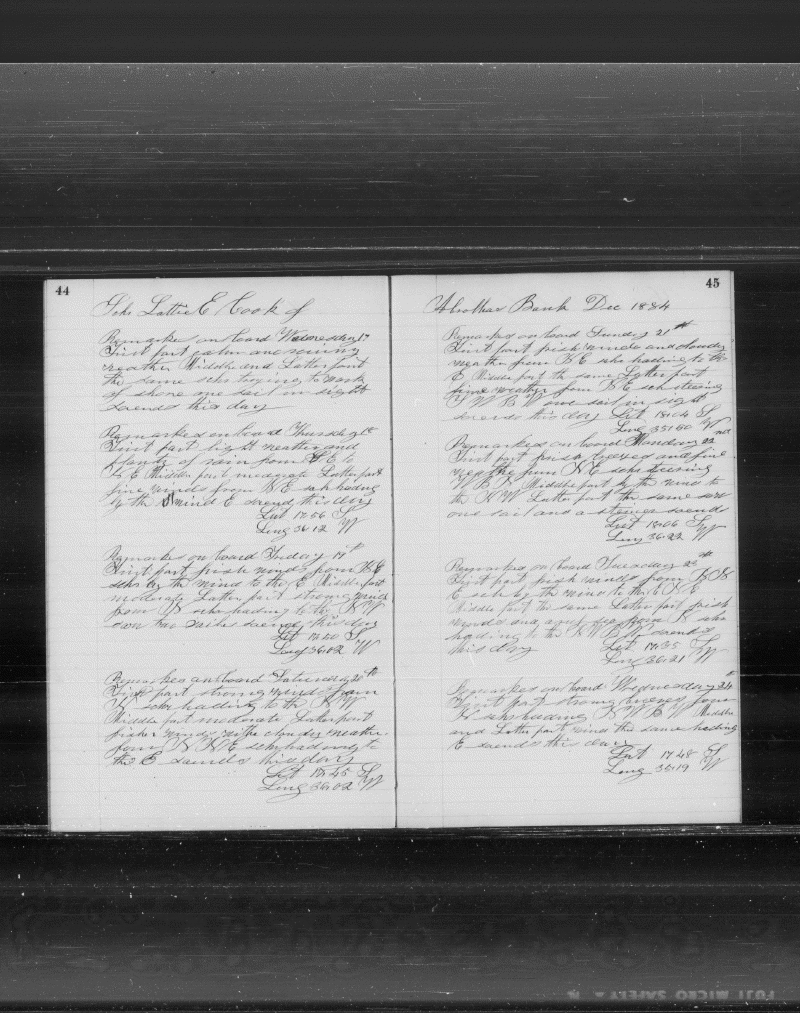 44
Schr Lottie E Cook of
Remarks on board Wednesday 17
First part calm and
weather Middle and Latter part
the same schr trying to work
of shore one sail in sight
So ends this day
Remarks on board Thursday 18th
First part light weather and
plenty of rain from S E to
N E Middle part moderate Latter part
fine winds from N E schr heding
by the wind E so end this day
Lat 17.56 S
Long 36.12 W
Remarks on board Friday 19th
First part frish winds from N E
schr by the wind to the E Middle part
moderate Latter part strong winds
from N schr hading to the N W
so ends this day
Lat 17.40 S
Long 36.02 W
Remarks on board Saturday 20th
First part strong winds from
N schr hading to the N W
Middle part moderate Latter part
winds with cloudy weather
from N N E schr hading to
the E so ends this day
Lat 17.45 S
Long 36.02 W
45
Bank Dec 1884
Remarks on board Sunday 21st
First part frish winds and cloudy
weather from N E schr hading to the
E Middle part the same Latter part
fine weather from N E sch steering
W B W one sail in sight
so ends this day Lat 18.04 S
Long 35.50 W
Remarks on board Monday 22nd
First part frish breezes and fine
weather from N E schr steering
W B N Middle part by the wind to
the N W Latter part the same saw
one sail and a steamer so ends
Lat 18.06 S
Long 36.22 W
Remarks on board Tuesday 23rd
First part frish winds from
E sch by the wind to the
Middle part the same Latter part frish
winds and from N schr
hading to the N W B W so ends
this day Lat 17.35 S
Long 36.21 W
Remarks on board Wednesday 24th
First part strong breezes from
N schr hading N W B W Middle
and Latter part winds the same hading
E so ends this day
Lat 17.48 S
Long 35.19 W
FUJI MICRO SAFETY